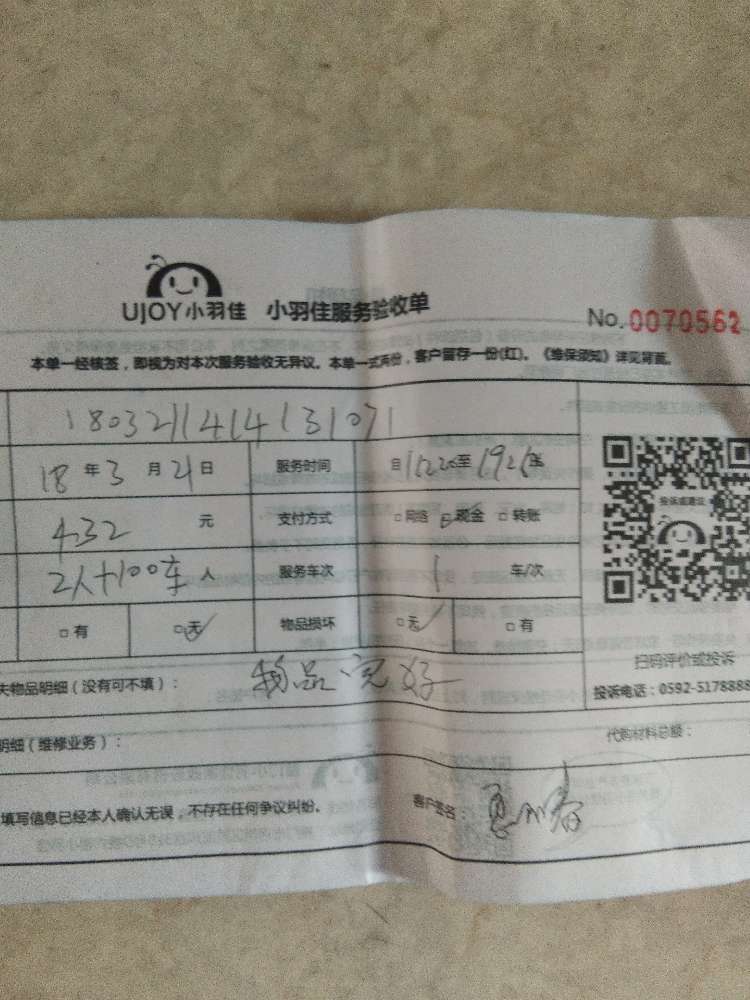 UJOY小羽佳 小羽佳服务验收单
No. 0070562
本单一经核签，即视为对本次服务验收无异议。本单一式两份，客户留存一份(红)。《维保须知》详见背面。
1803211414131071
18 年 3 月 21 日 服务时间 自 至
432 元 支付方式 □ 网络 □ 现金 □ 转账
投诉或建议
2人+100车 人 服务车次 1 车/次
□ 有 □ 无 物品损坏 □ 无 □ 有
扫码评价或投诉
失物品明细（没有可不填）： 物品完好
投诉电话：0592-5178888
明细（维修业务）：
代购材料总额：
填写信息已经本人确认无误，不存在任何争议纠纷。
客户签名：